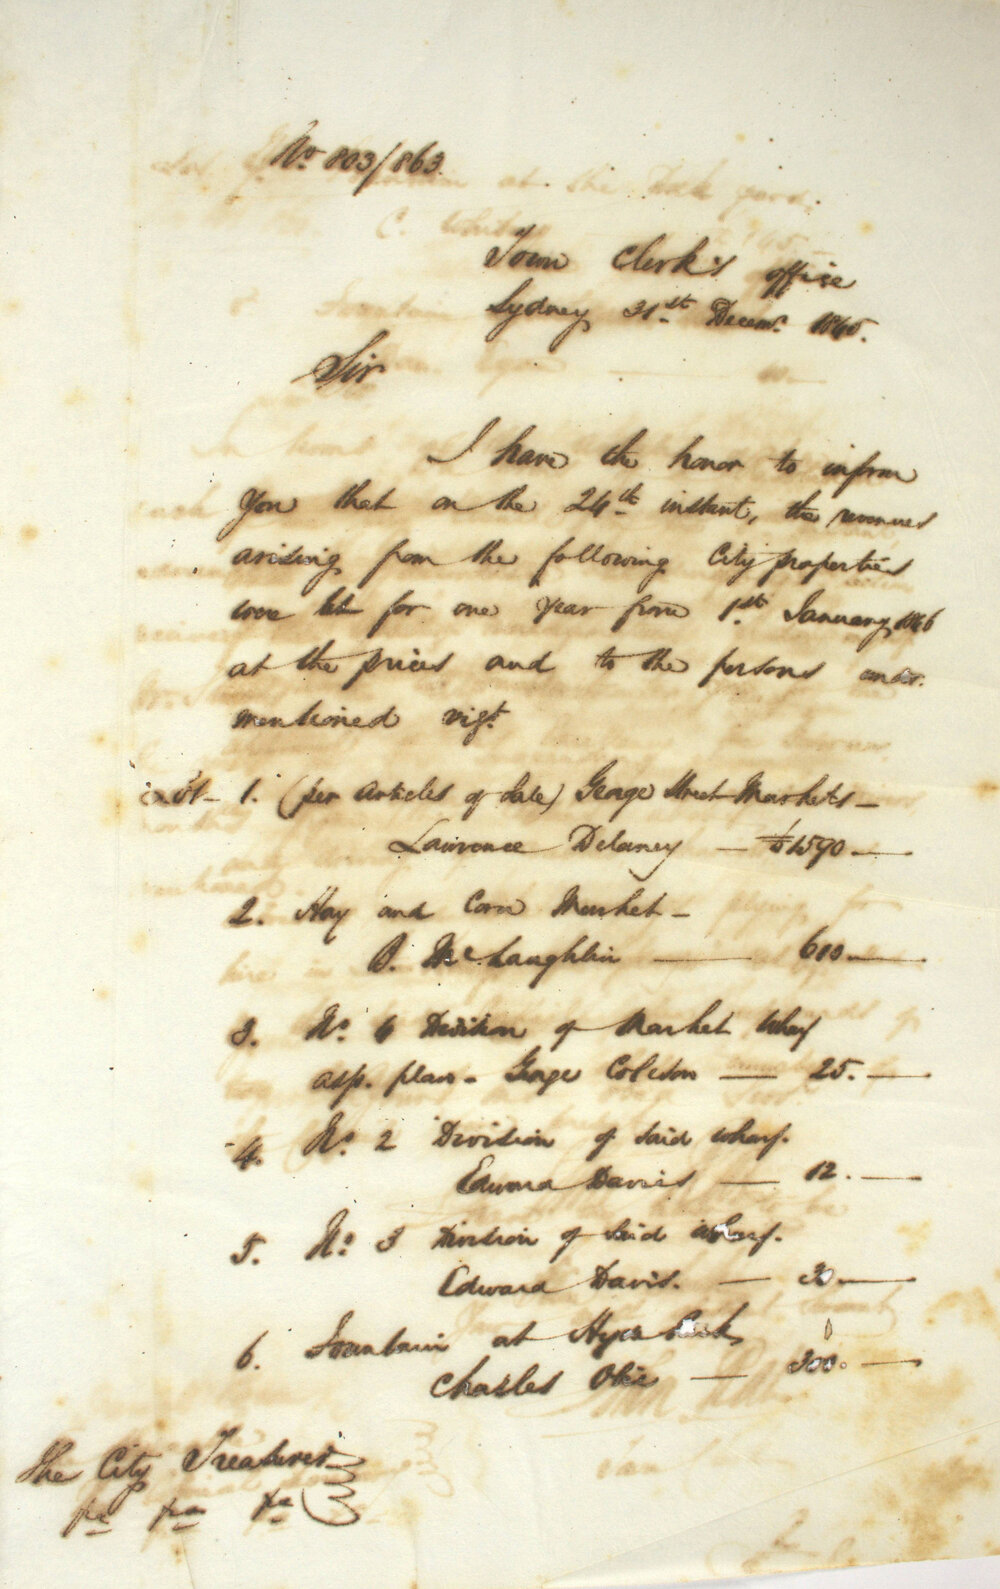 No. 803/863.
Town Clerk's office
Sydney 31st Decemr. 1845.
Sir
I have the honor to inform
You that on the 24th instant, the revenues
arising from the following City properties
were let for one year from 1st January 1846
at the prices and to the persons under.
mentioned vizt.
Lot - 1. (per Articles of Sale) George Street Markets -
Lawrence Delaney - £1590 -
2. Hay and Corn Market -
McLaughlin - 610 -
3. No. Division of Market Wharf
asp. plan - George Coleson - 25. -
4. No. 2 Division of said wharf.
Edward Davis - 12. -
5. No. 3 Division of said wharf.
Edward Davis. - 30 -
6. Fountain at Hyde Park
Charles - 300. -
The City Treasurer
&c &c &c